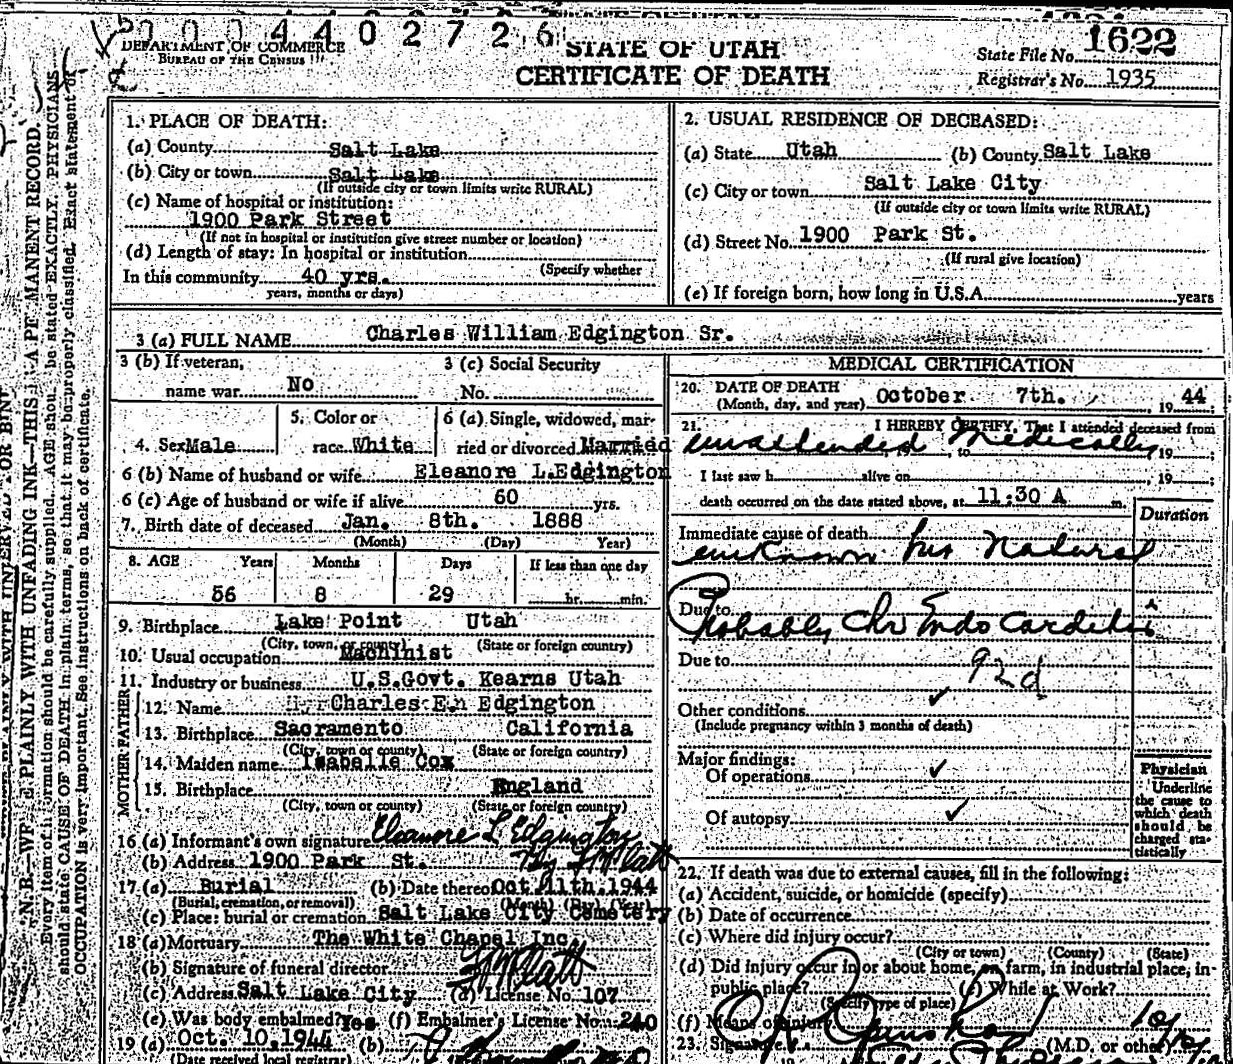 2 0 0 4 4 0 2 7 2 6
DEPARTMENT OF COMMERCE
BUREAU OF THE CENSUS
STATE OF UTAH
CERTIFICATE OF DEATH
State File No. 1622
Registrar's No. 1935
N. B.—WRITE PLAINLY WITH UNFADING INK—THIS IS A PERMANENT RECORD.
Every item of information should be carefully supplied. AGE should be stated EXACTLY. PHYSICIANS
should state CAUSE OF DEATH in plain terms, so that it may be properly classified. Exact statement of
OCCUPATION is very important. See instructions on back of certificate.
1. PLACE OF DEATH:
(a) County Salt Lake
(b) City or town Salt Lake
(If outside city or town limits write RURAL)
(c) Name of hospital or institution:
1900 Park Street
(If not in hospital or institution give street number or location)
(d) Length of stay: In hospital or institution
(Specify whether
In this community 40 yrs.
years, months or days)
2. USUAL RESIDENCE OF DECEASED:
(a) State Utah (b) County Salt Lake
(c) City or town Salt Lake City
(If outside city or town limits write RURAL)
(d) Street No. 1900 Park St.
(If rural give location)
(e) If foreign born, how long in U.S.A. years
3 (a) FULL NAME Charles William Edgington Sr.
3 (b) If veteran,
name war No
3 (c) Social Security
No.
4. Sex Male
5. Color or
race White
6 (a) Single, widowed, mar-
ried or divorced Married
6 (b) Name of husband or wife Eleanore L.Edgington
6 (c) Age of husband or wife if alive 60 yrs.
7. Birth date of deceased Jan. 8th. 1888
(Month) (Day) Year)
8. AGE Years Months Days If less than one day
56 8 29 hr. min.
9. Birthplace Lake Point Utah
(City, town, or county) (State or foreign country)
10. Usual occupation Machinist
11. Industry or business U.S.Govt. Kearns Utah
FATHER
12. Name Charles E Edgington
13. Birthplace Sacramento California
(City, town or county) (State or foreign country)
MOTHER
14. Maiden name Isabelle Cox
15. Birthplace England
(City, town or county) (State or foreign country)
16 (a) Informant's own signature Eleanore L Edgington
(b) Address 1900 Park St.
17 (a) Burial (b) Date thereof Oct. 11th. 1944
(Burial, cremation, or removal) (Month) (Day) (Year)
(c) Place: burial or cremation Salt Lake City Cemetery
18 (a) Mortuary The White Chapel Inc.
(b) Signature of funeral director
(c) Address Salt Lake City (d) License No. 107
(e) Was body embalmed? Yes (f) Embalmer's License No. 240
19 (a) Oct. 10, 1944 (b)
(Date received local registrar)
MEDICAL CERTIFICATION
20. DATE OF DEATH
(Month, day, and year) October 7th. , 19 44;
21. I HEREBY CERTIFY, That I attended deceased from
unattended , 19 , to Medically , 19 ;
I last saw h alive on , 19 ;
death occurred on the date stated above, at 11:30 A m.
Duration
Immediate cause of death
unknown but Natural
Due to
Probably Chr Endocarditis
Due to 92d
Other conditions ✓
(Include pregnancy within 3 months of death)
Major findings:
Of operations ✓
Of autopsy ✓
Physician
Underline
the cause to
which death
should be
charged sta-
tistically
22. If death was due to external causes, fill in the following:
(a) Accident, suicide, or homicide (specify)
(b) Date of occurrence
(c) Where did injury occur?
(City or town) (County) (State)
(d) Did injury occur in or about home, on farm, in industrial place, in
public place? (e) While at Work?
(Specify type of place)
(f) Means of injury
23. Signature (M.D. or other)